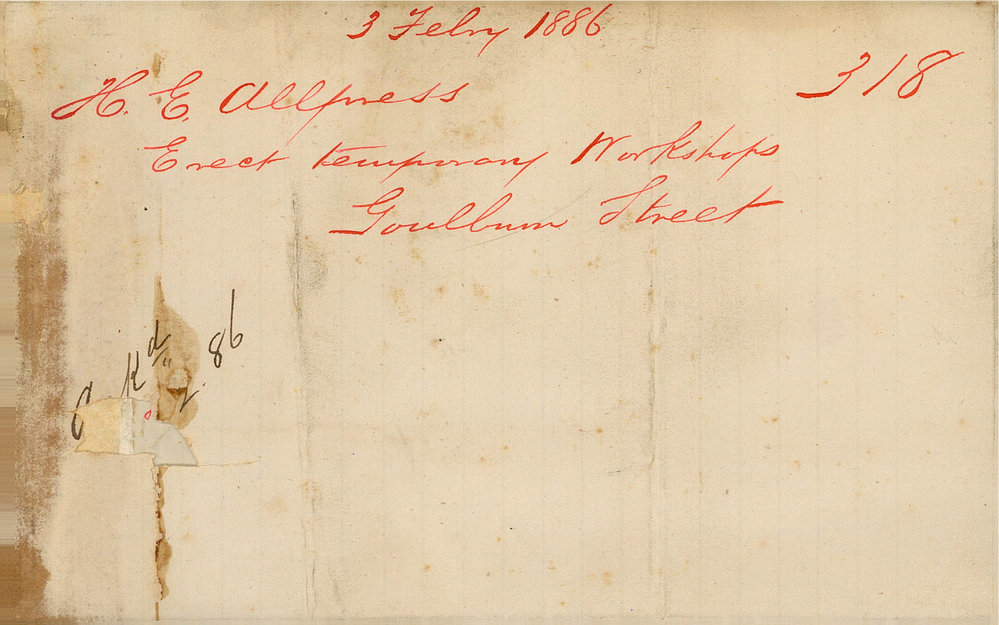 3 Febry 1886
318
H. E. Allpress
Erect temporary Workshops
Goulburn Street
86